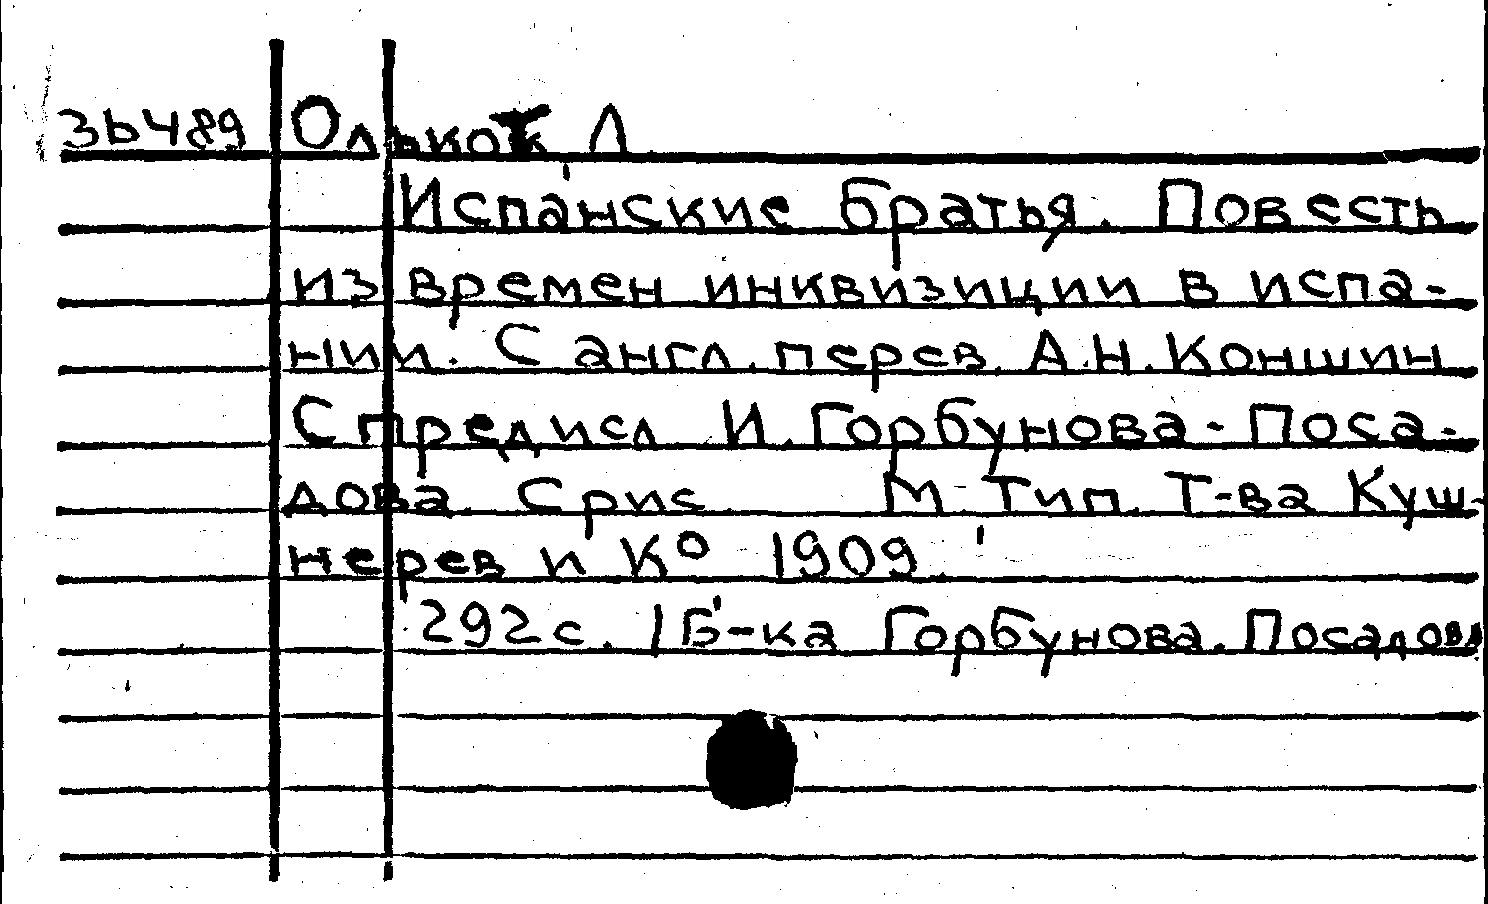 3Ь489 Олькот Л
Испанские братья. Повесть
из времен инквизиции в испа-
нии. С англ. перев. А.Н. Коншин
С предисл И. Горбунова-Поса-
дова. С рис. М. Тип. Т-ва Куш-
нерев и К° 1909.
292 с. /Б-ка Горбунова. Посадова